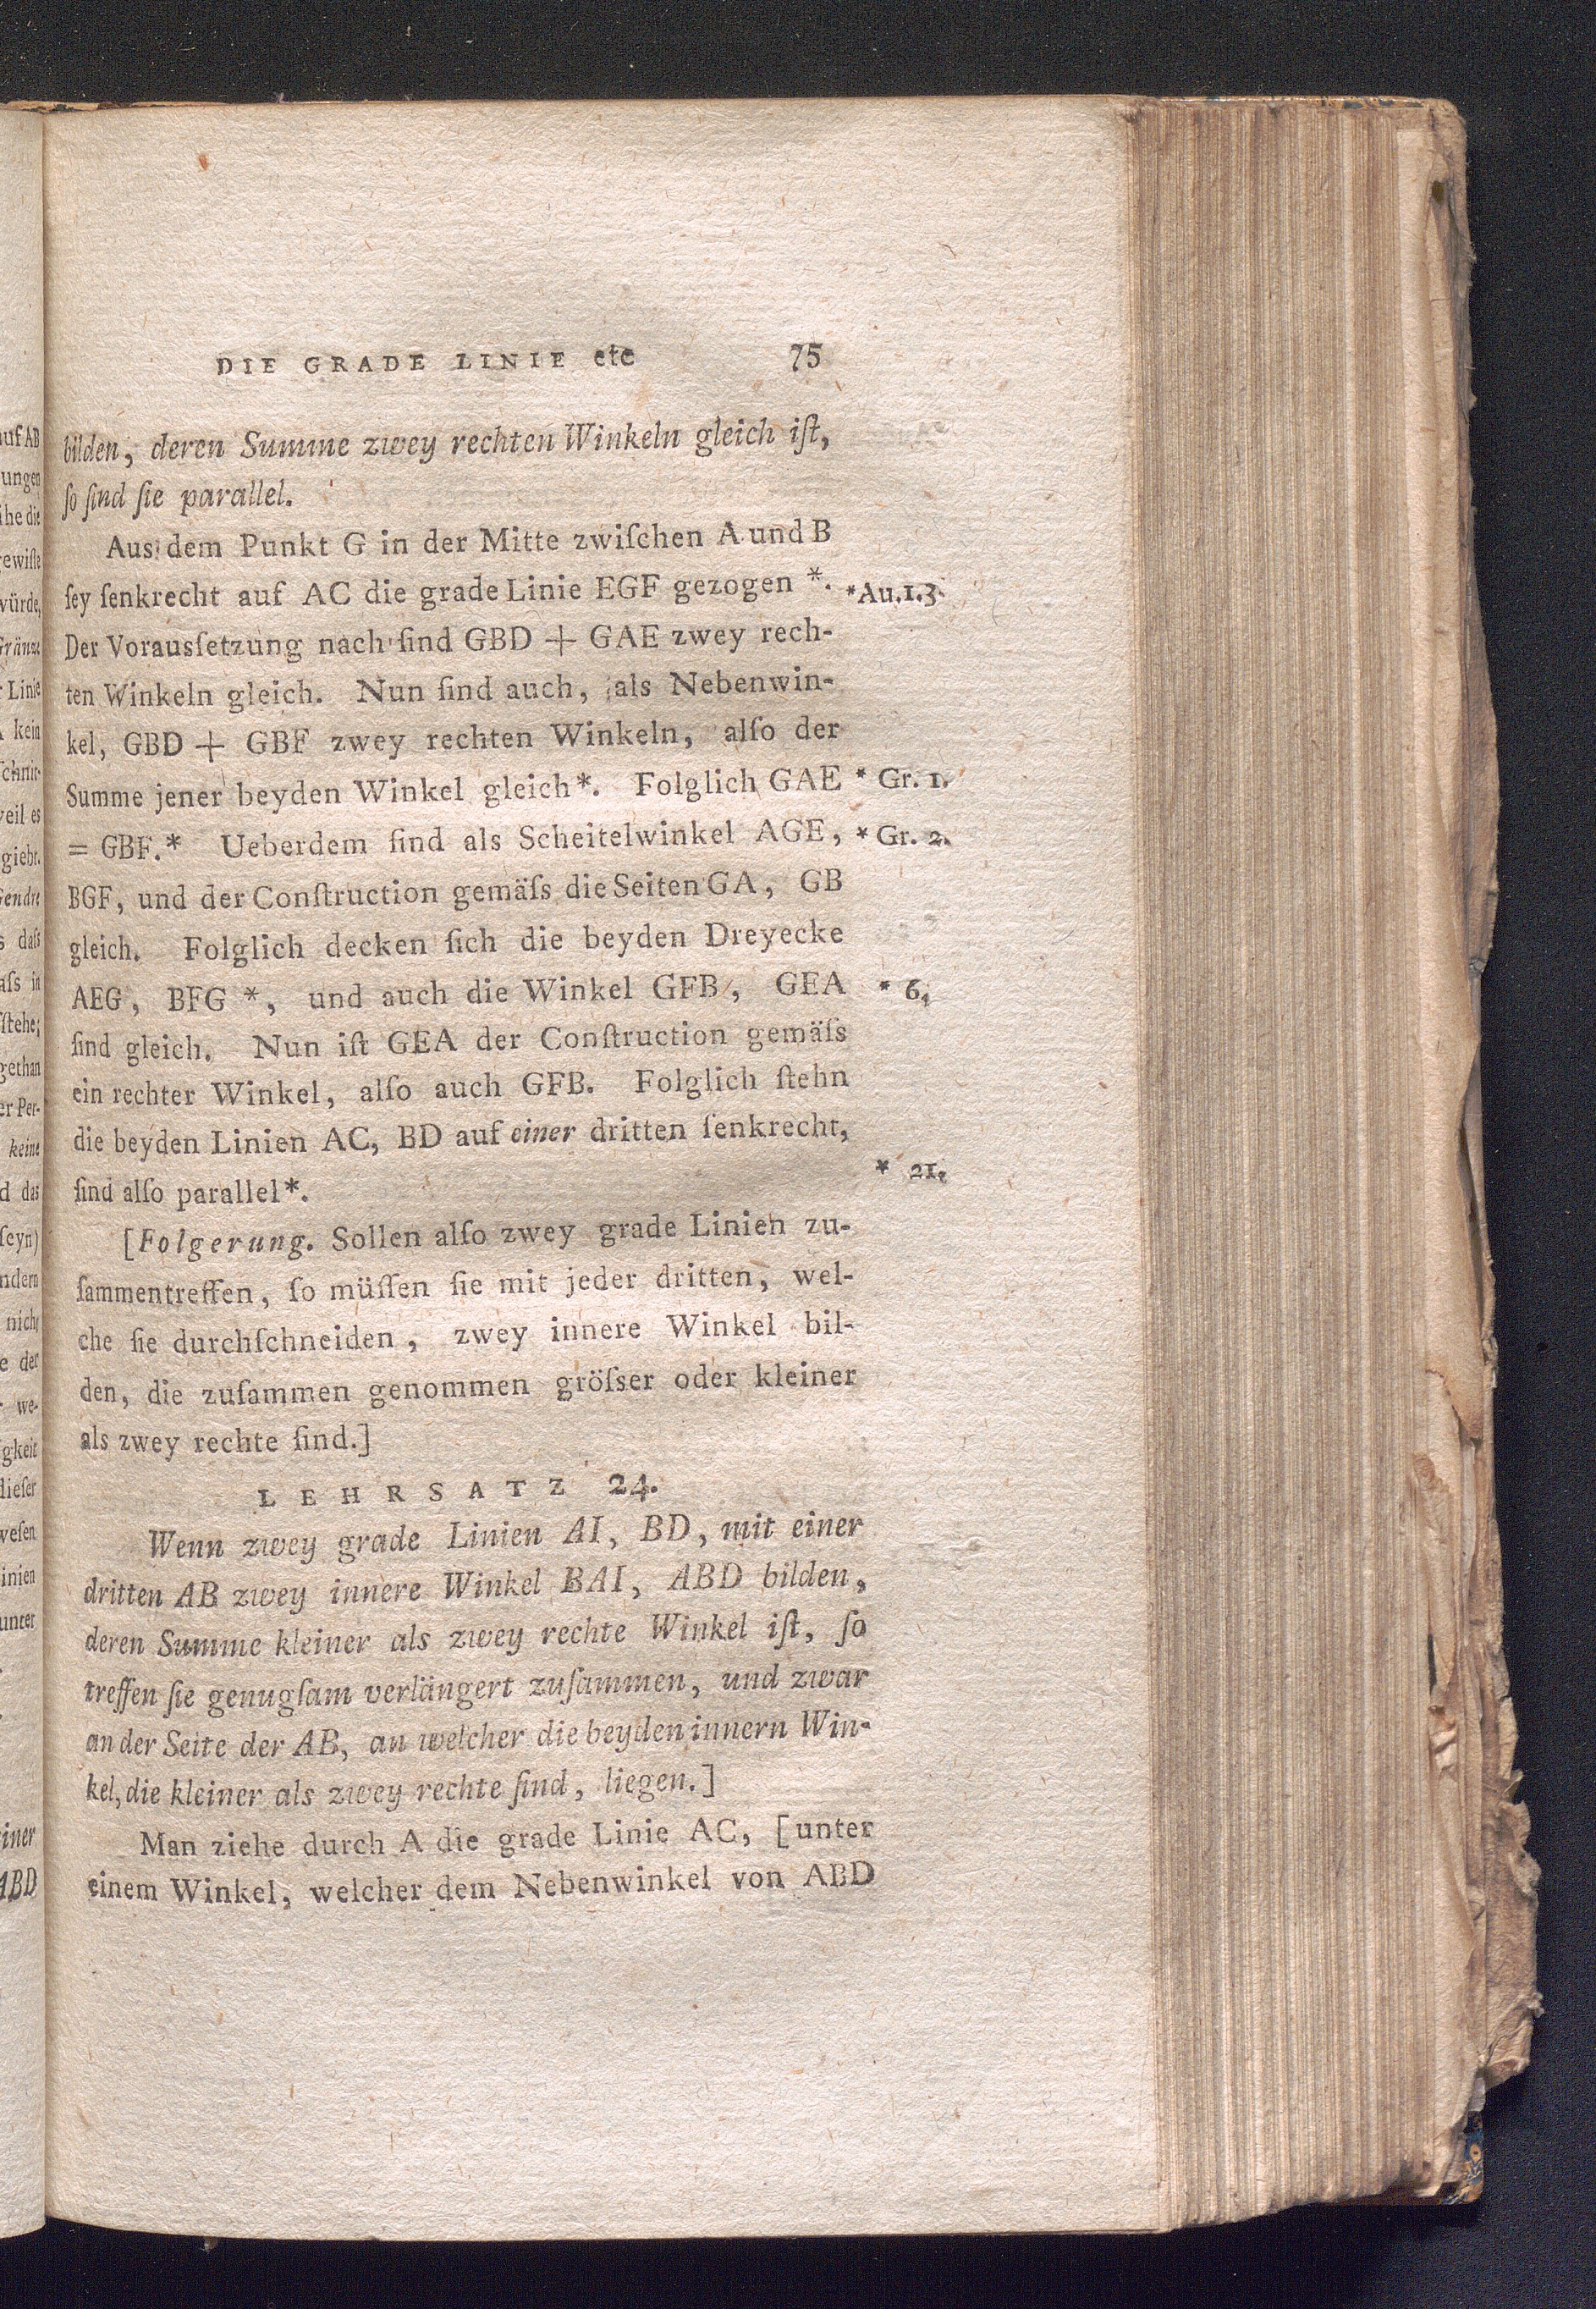 DIE GRADE LINIE etc 75
bilden, deren Summe zwey rechten Winkeln gleich iſt,
ſo ſind ſie parallel.
Aus dem Punkt G in der Mitte zwiſchen A und B
ſey ſenkrecht auf AC die grade Linie EGF gezogen *. *Au.1.3.
Der Vorausſetzung nach ſind GBD + GAE zwey rech-
ten Winkeln gleich. Nun ſind auch, als Nebenwin-
kel, GBD + GBF zwey rechten Winkeln, alſo der
Summe jener beyden Winkel gleich*. Folglich GAE * Gr. 1.
= GBF.* Ueberdem ſind als Scheitelwinkel AGE, * Gr. 2.
BGF, und der Conſtruction gemäſs die Seiten GA, GB
gleich. Folglich decken ſich die beyden Dreyecke
AEG, BFG *, und auch die Winkel GFB, GEA * 6.
ſind gleich. Nun iſt GEA der Conſtruction gemäſs
ein rechter Winkel, alſo auch GFB. Folglich ſtehn
die beyden Linien AC, BD auf einer dritten ſenkrecht,
ſind alſo parallel*. * 21.
[Folgerung. Sollen alſo zwey grade Linien zu-
ſammentreffen, ſo müſſen ſie mit jeder dritten, wel-
che ſie durchſchneiden, zwey innere Winkel bil-
den, die zuſammen genommen gröſser oder kleiner
als zwey rechte ſind.]
LEHRSATZ 24.
Wenn zwey grade Linien AI, BD, mit einer
dritten AB zwey innere Winkel BAI, ABD bilden,
deren Summe kleiner als zwey rechte Winkel iſt, ſo
treffen ſie genugſam verlängert zuſammen, und zwar
an der Seite der AB, an welcher die beyden innern Win-
kel, die kleiner als zwey rechte ſind, liegen.]
Man ziehe durch A die grade Linie AC, [unter
einem Winkel, welcher dem Nebenwinkel von ABD